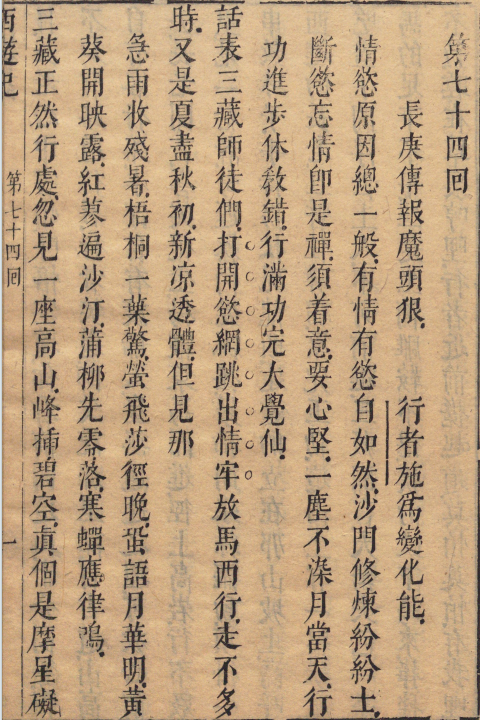 第七十四回
長庚傳報魔頭狠　行者施為變化能
情慾原因總一般有情有慾自如然沙門修煉紛紛士
斷慾忘情即是禪須着意要心堅一塵不染月當天行
功進步休教錯行滿功完大覺仙
話表三藏師徒們打開慾網跳出情牢放馬西行走不多
時又是夏盡秋初新凉透體但見那
急雨收殘暑梧桐一葉驚螢飛莎徑晚蛩語月華明黃
葵開映露紅蓼遍沙汀蒲柳先零落寒蟬應律鳴
三藏正然行處忽見一座高山峰揷碧空真個是摩星礙
西遊記　第七十四回　一